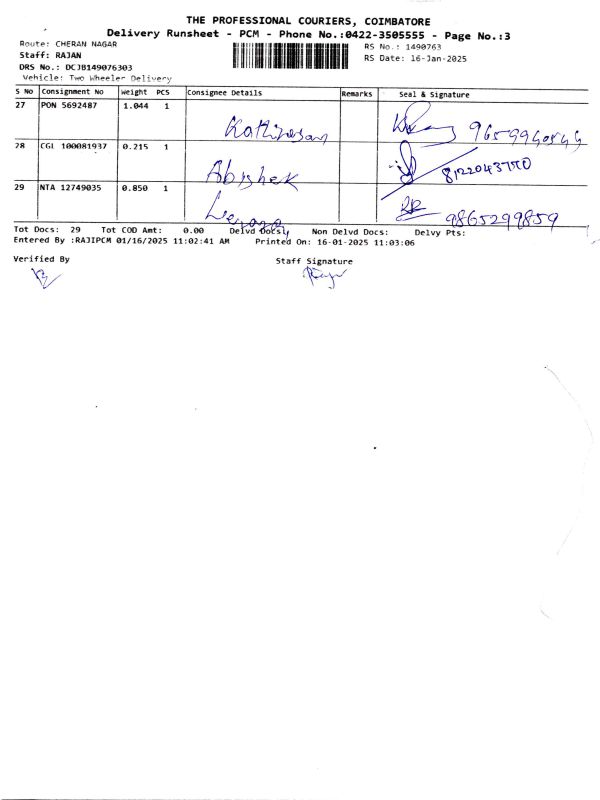 THE PROFESSIONAL COURIERS, COIMBATORE
Delivery Runsheet - PCM - Phone No.:0422-3505555 - Page No.:3
Route: CHERAN NAGAR
RS No.: 1490763
Staff: RAJAN
RS Date: 16-Jan-2025
DRS No.: DCJB149076303
Vehicle: Two Wheeler Delivery
S No Consignment No Weight PCS Consignee Details Remarks Seal & Signature
27 PON 5692487 1.044 1
Kathiresan
28 CGL 100081937 0.215 1
Abishek 8122043770
29 NTA 12749035 0.850 1
9865299859
Tot Docs: 29 Tot COD Amt: 0.00 Delvd Docs: Non Delvd Docs: Delvy Pts:
Entered By :RAJIPCM 01/16/2025 11:02:41 AM Printed On: 16-01-2025 11:03:06
Verified By Staff Signature